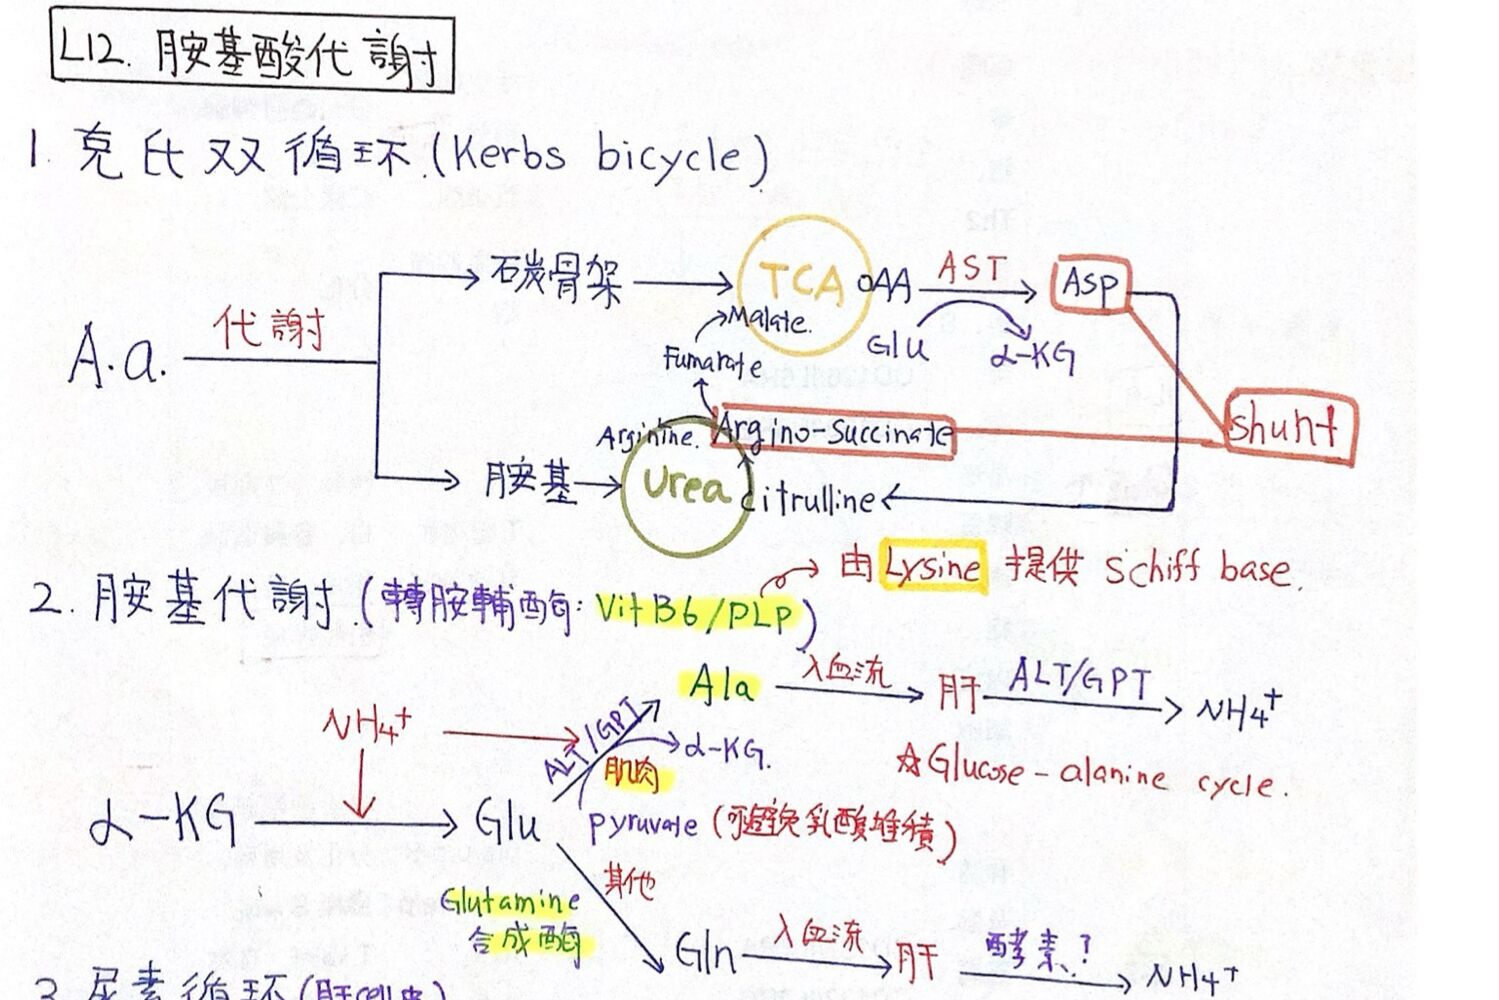 L12. 胺基酸代謝
1. 克氏双循环 (Kerbs bicycle)
A.a. 代謝
石炭骨架 TCA OAA AST Asp
Malate.
Glu α-KG
Fumarate
Arginine. Argino-Succinate shunt
胺基 Urea citrulline
由 Lysine 提供 schiff base.
2. 胺基代謝. (轉胺輔酶: Vit B6/PLP)
Ala 入血流 肝 ALT/GPT NH4+
NH4+ ALT/GPT α-KG.
肌肉 ☆Glucose-alanine cycle.
α-KG Glu pyruvate (可避免乳酸堆積)
其他
Glutamine
合成酶
Gln 入血流 肝 酵素? NH4+
3. 尿素循环 (肝cell內)